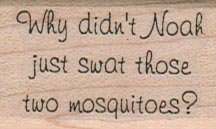 Why didn't Noah
just swat those
two mosquitoes?